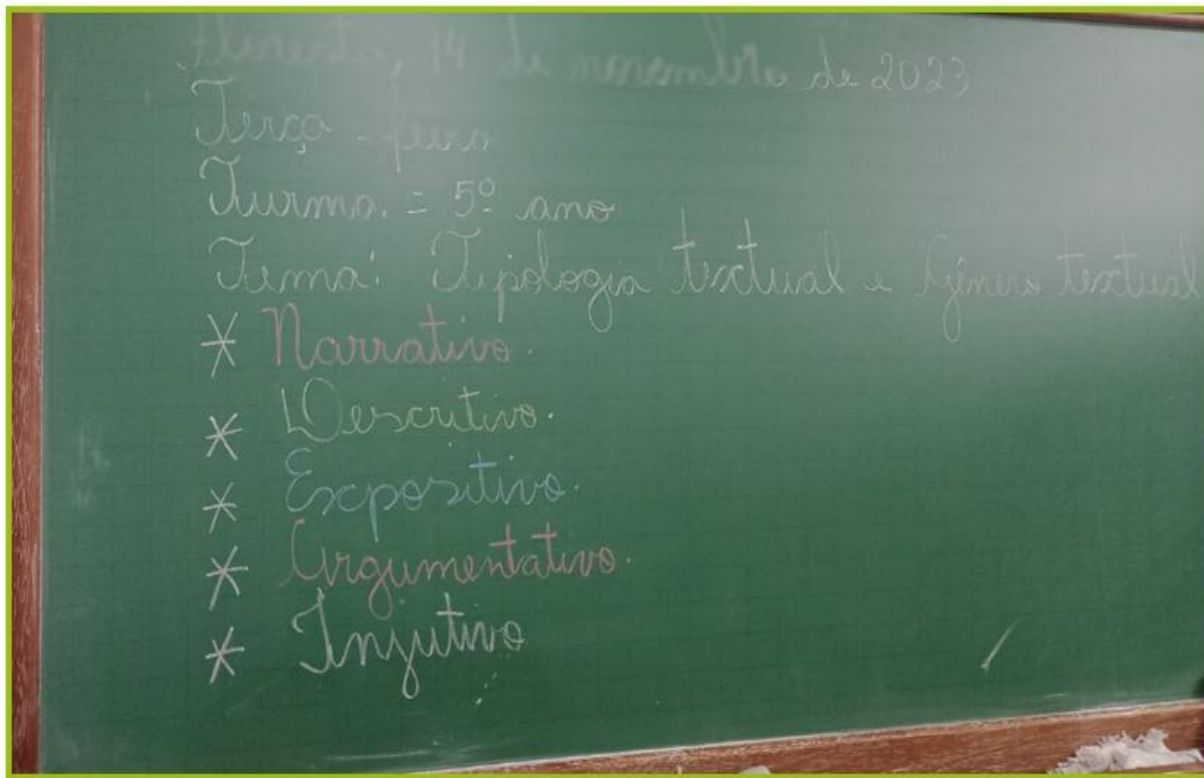 , 14 de novembro de 2023
Terça - feira
Turma: = 5º ano
Tema: Tipologia textual e Gênero textual
* Narrativo.
* Descritivo.
* Expositivo.
* Argumentativo.
* Injutivo